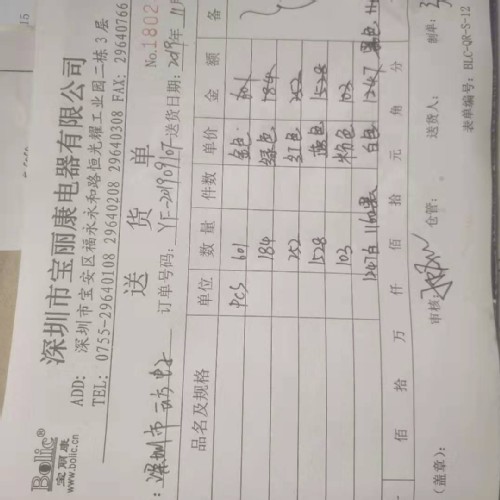 Bolic®
宝丽康
www.bolic.cn
深圳市宝丽康电器有限公司
ADD: 深圳市宝安区福永永和路恒光耀工业园二栋3层
TEL: 0755-29640108 29640208 29640308 FAX: 29640766
送货单
No.1802
: 深圳市 订单号码: YF-20190907 送货日期: 2019年11月
品名及规格 单位 数量 件数 单价 金额 备
PCS 601 金色 601
184 绿色 184
252 红色 252
1528 蓝色 1528
103 粉色 103
白色 1247 黑色
佰 拾 万 仟 佰 拾 元 角 分
(盖章): 审核: 仓管: 送货人: 制单:
表单编号: BLC-QR-S-12
15